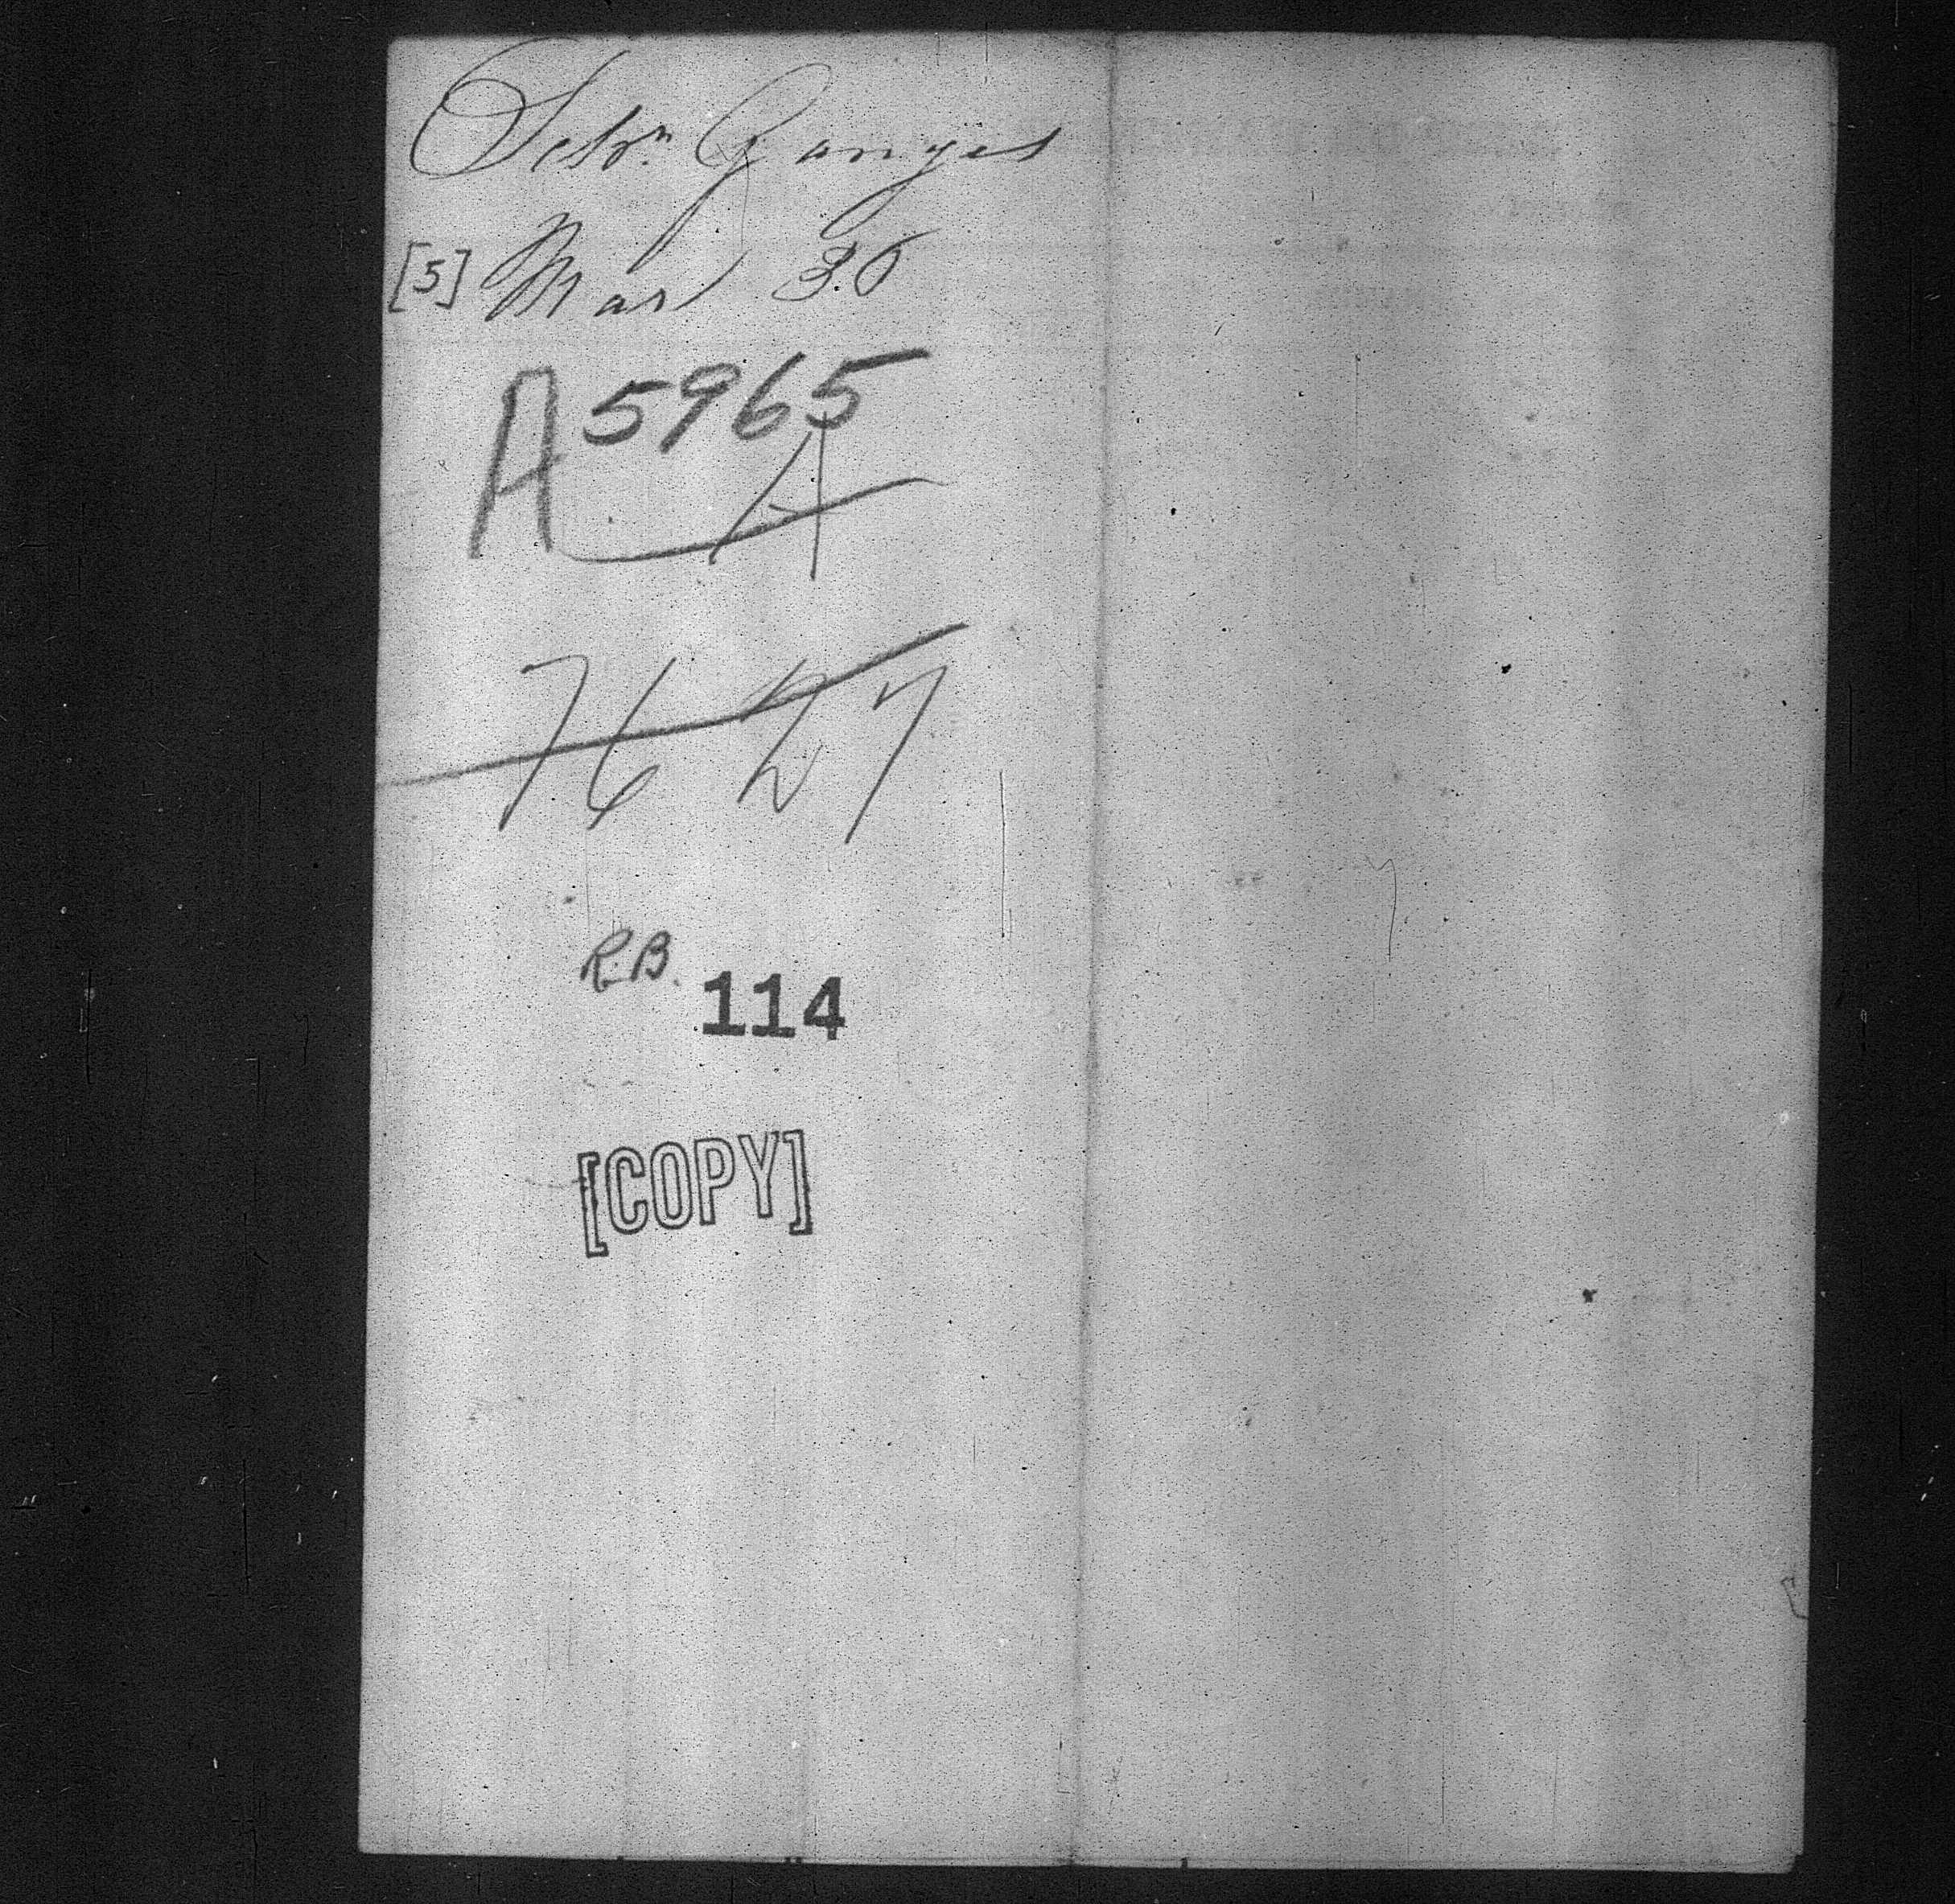 Schr. Ganges
[5] Mar 30
A 5965
A
76 27
R.B. 114
[COPY]